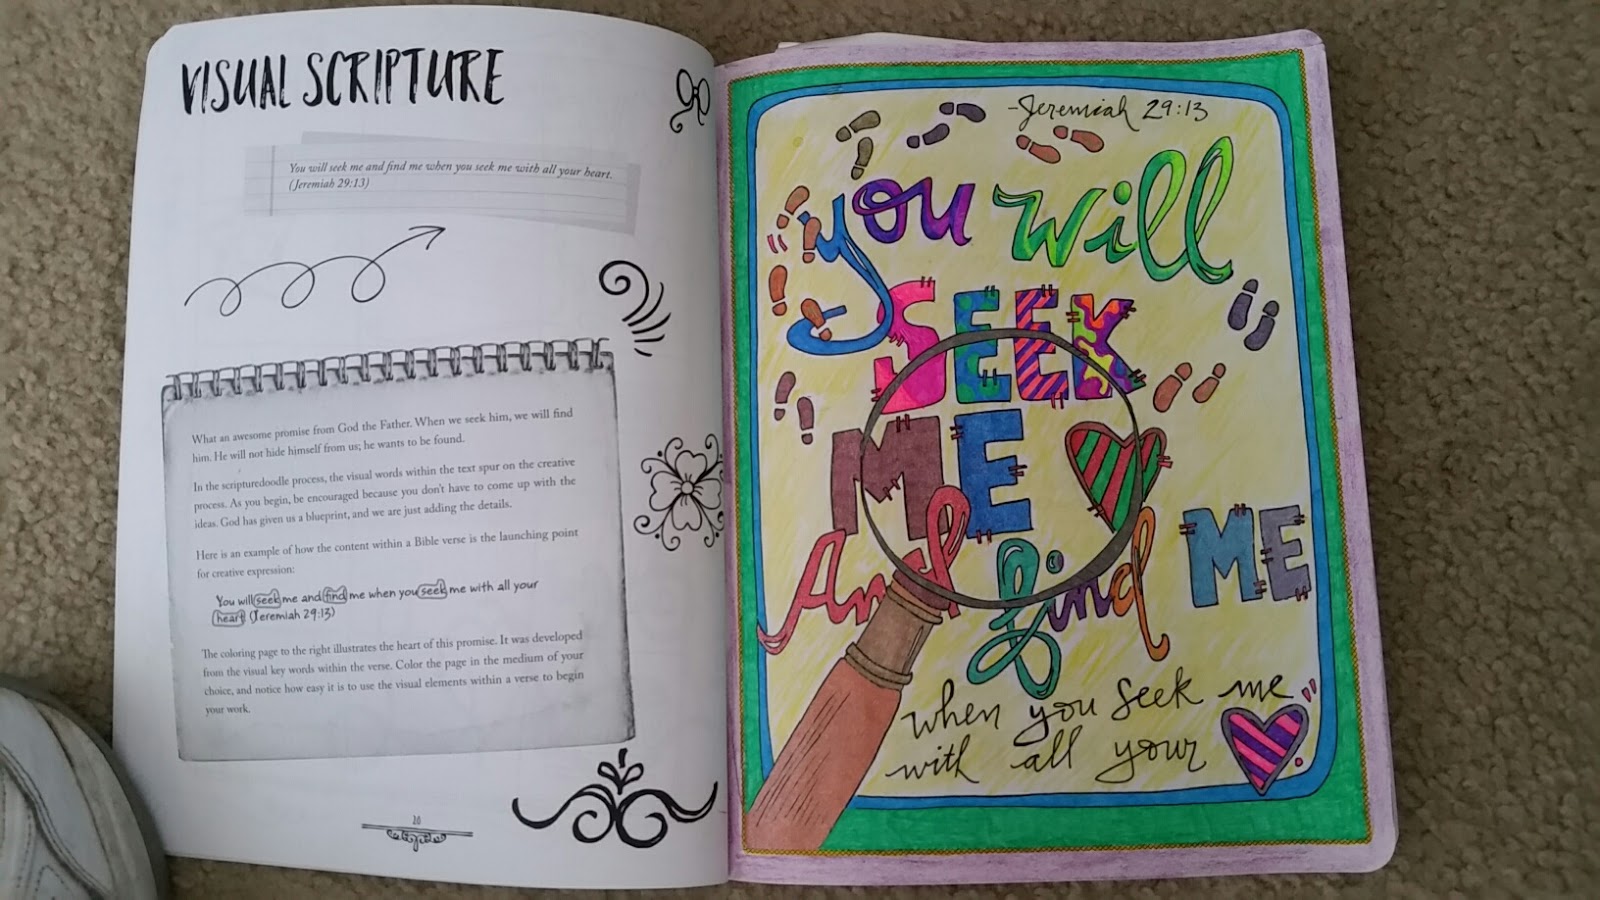 VISUAL SCRIPTURE
You will seek me and find me when you seek me with all your heart.
(Jeremiah 29:13)
What an awesome promise from God the Father. When we seek him, we will find
him. He will not hide himself from us; he wants to be found.
In the scripturedoodle process, the visual words within the text spur on the creative
process. As you begin, be encouraged because you don't have to come up with the
ideas. God has given us a blueprint, and we are just adding the details.
Here is an example of how the content within a Bible verse is the launching point
for creative expression:
You will seek me and find me when you seek me with all your
heart (Jeremiah 29:13)
The coloring page to the right illustrates the heart of this promise. It was developed
from the visual key words within the verse. Color the page in the medium of your
choice, and notice how easy it is to use the visual elements within a verse to begin
your work.
20
-Jeremiah 29:13
You will
SEEK
ME
And find ME
when you seek me
with all your